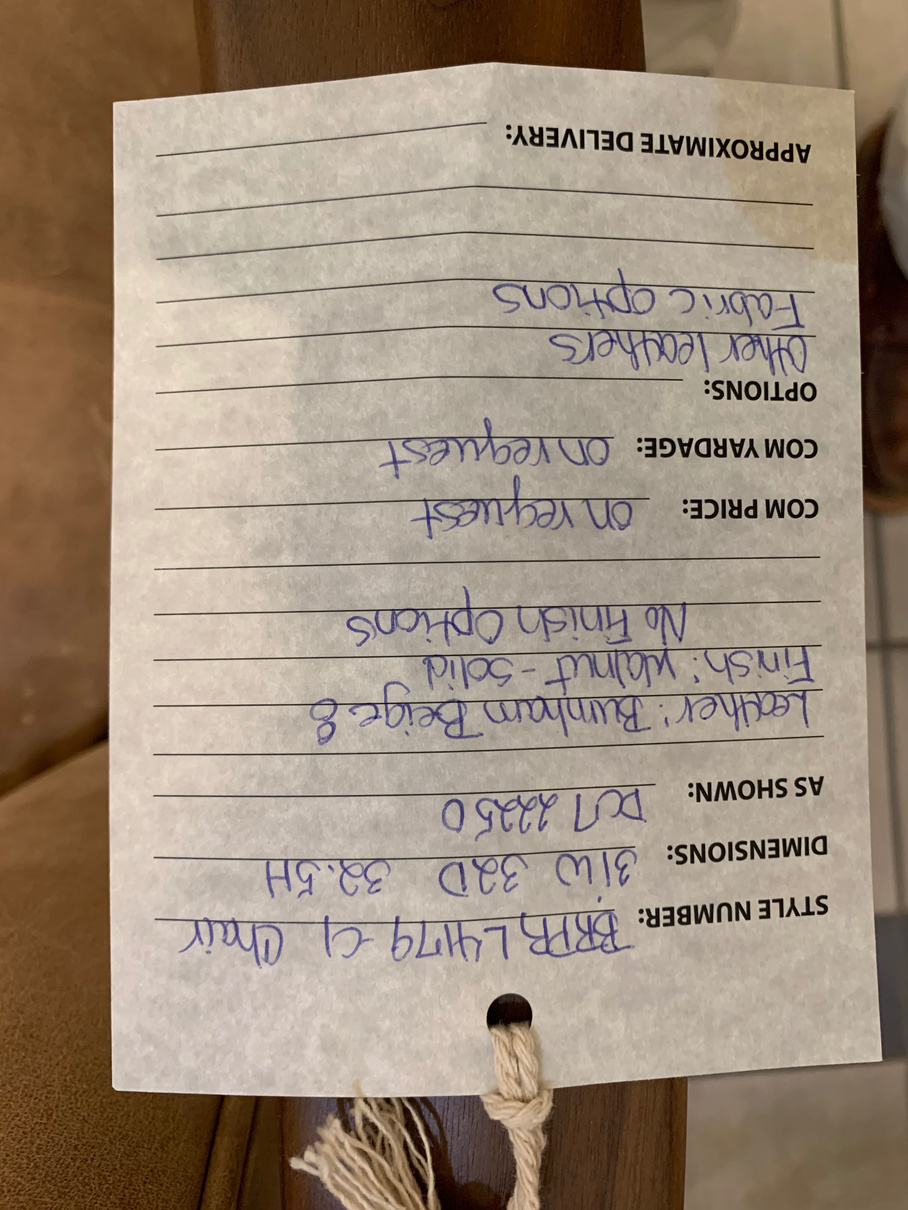 STYLE NUMBER: BRPR L4179-C1 Chair
DIMENSIONS: 31W 32D 32.5H
AS SHOWN: 22250
Leather: Burnham Beige 8
Finish: Walnut - Solid
No Finish Options
COM PRICE: on request
COM YARDAGE: on request
OPTIONS:
Other leathers
Fabric options
APPROXIMATE DELIVERY: